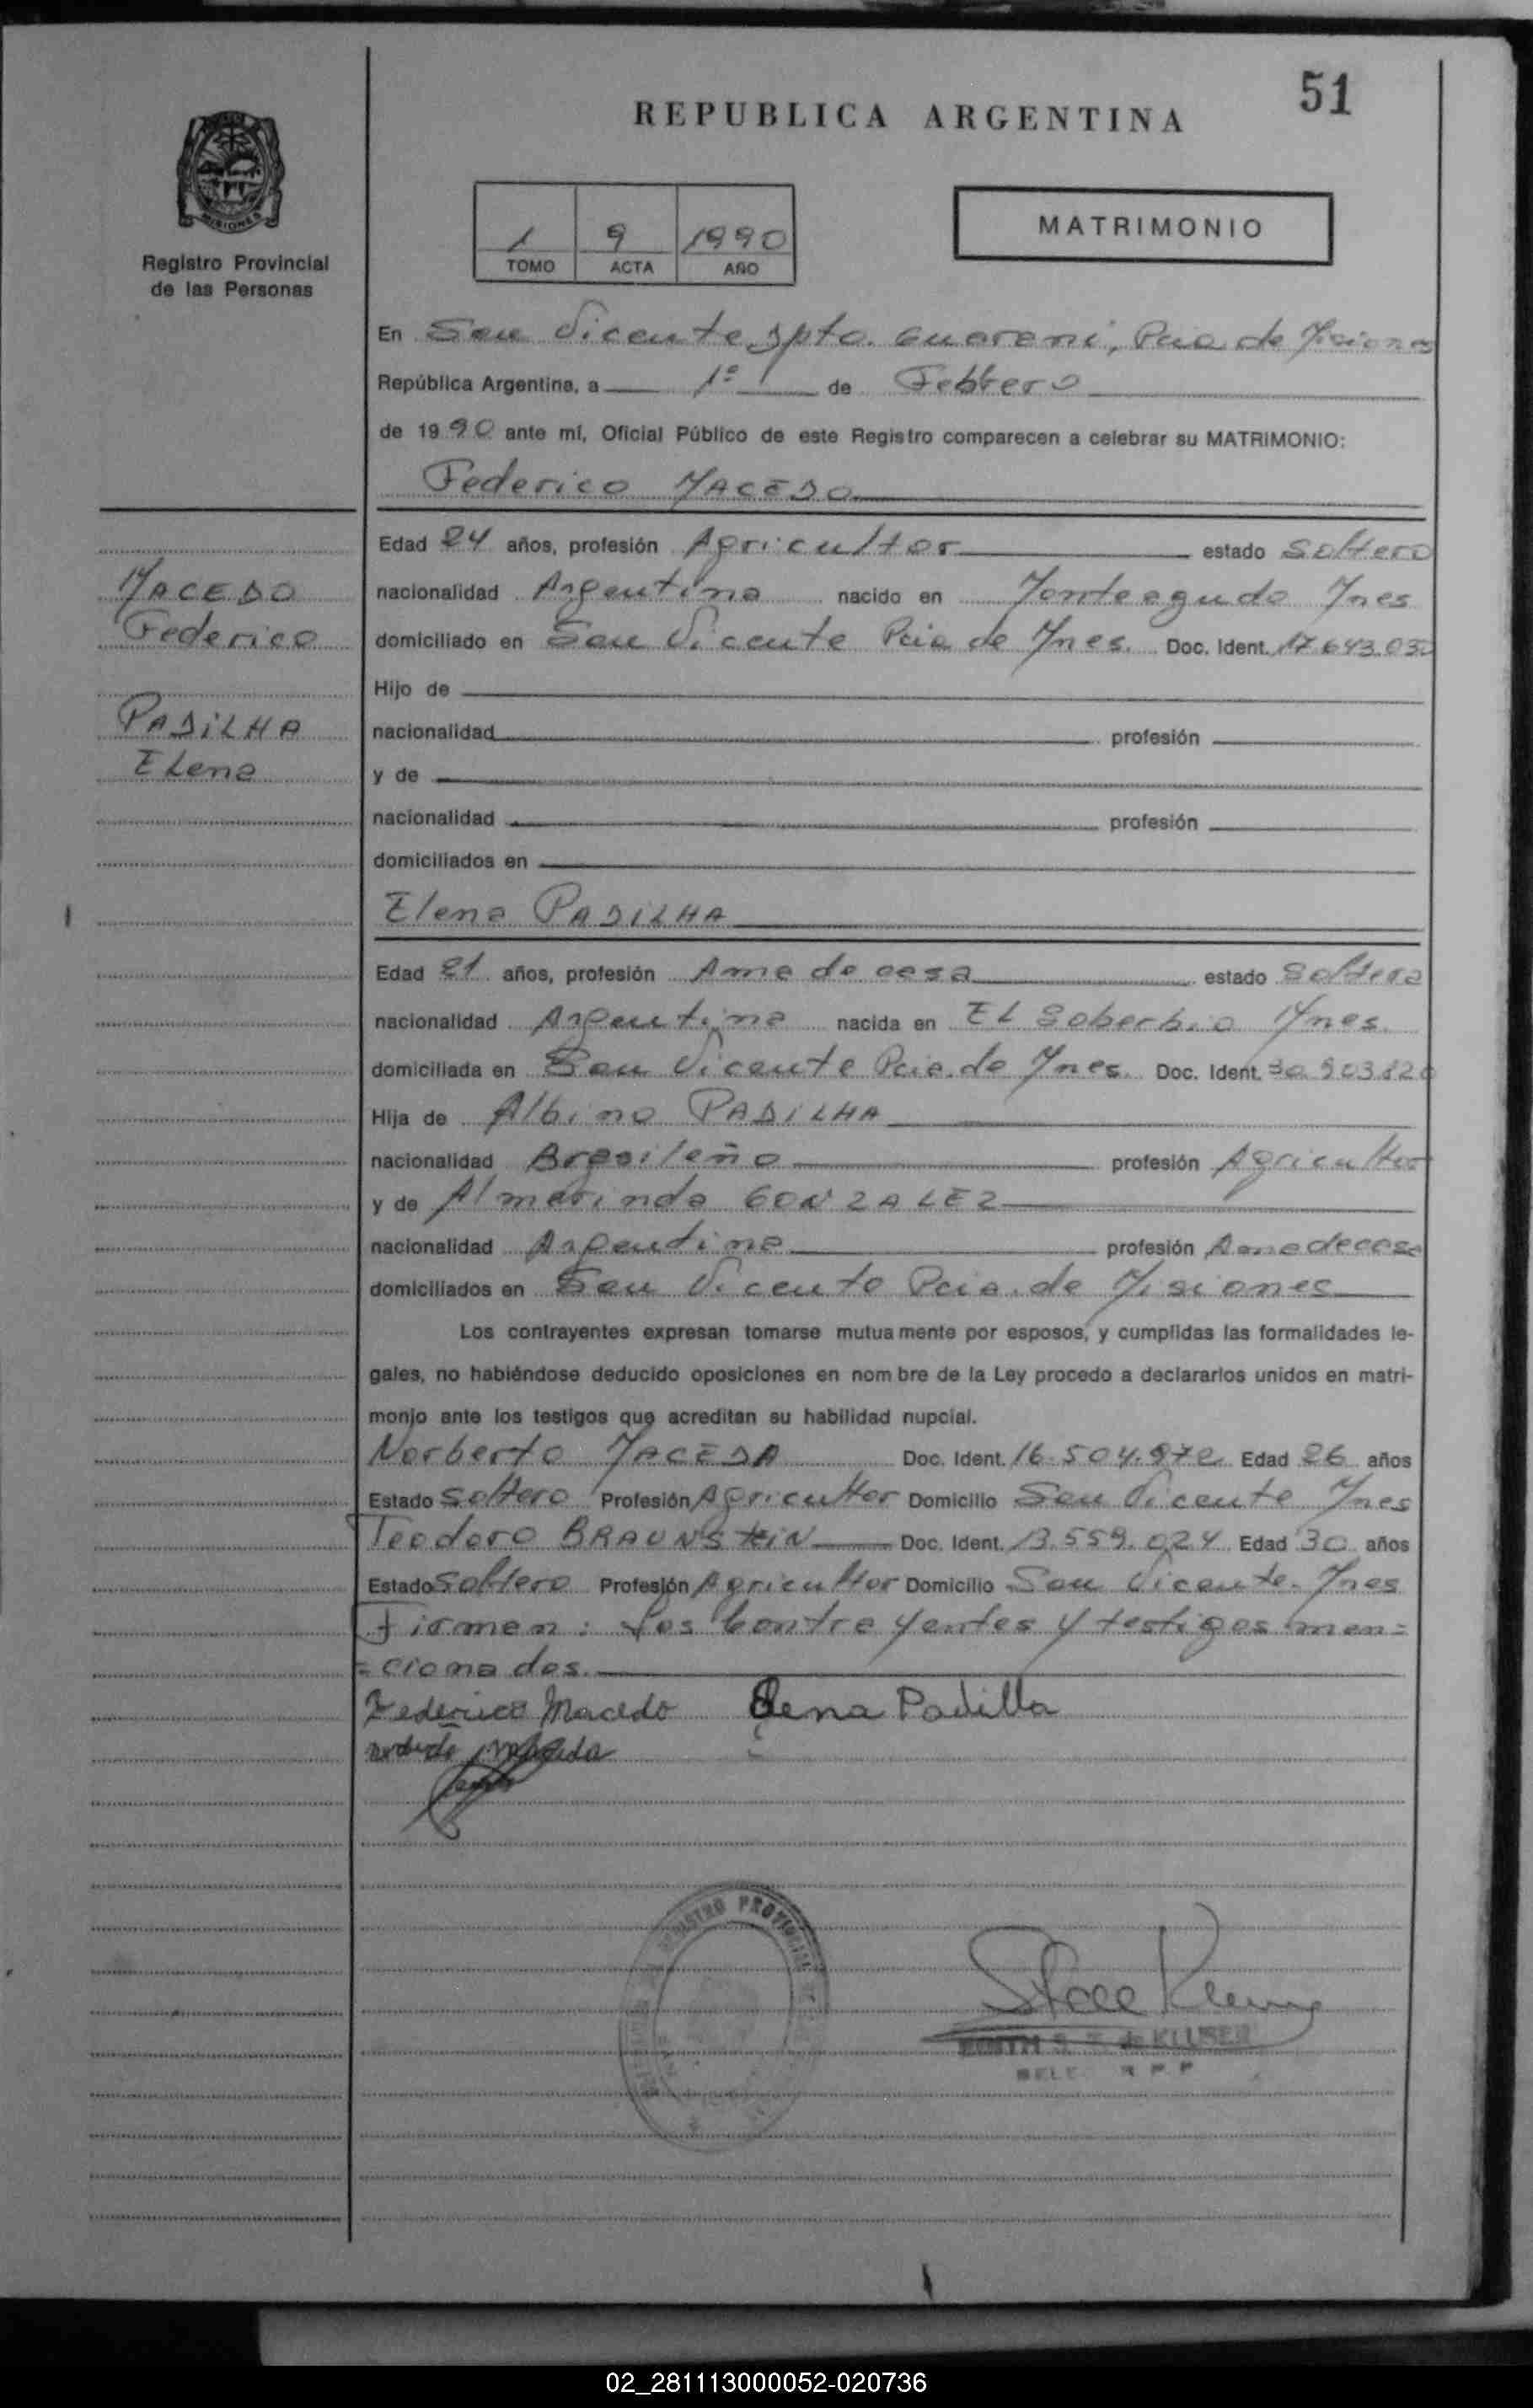 51
REPUBLICA ARGENTINA
MISIONES
Registro Provincial
de las Personas
1 9 1990
TOMO ACTA AÑO
MATRIMONIO
En San Vicente, Dpto. Guarani, Pcia de Misiones
República Argentina, a 1º de Febrero
de 1990 ante mí, Oficial Público de este Registro comparecen a celebrar su MATRIMONIO:
Federico MACEDO
Edad 24 años, profesión Agricultor estado Soltero
MACEDO
nacionalidad Argentina nacido en Monteagudo Mnes
Federico
domiciliado en San Vicente Pcia de Mnes. Doc. Ident. 17.643.03
Hijo de
PADILHA
nacionalidad profesión
Elena
y de
nacionalidad profesión
domiciliados en
Elena PADILHA
Edad 21 años, profesión Ama de casa estado Soltera
nacionalidad Argentina nacida en EL Soberbio Mnes.
domiciliada en San Vicente Pcia. de Mnes. Doc. Ident. 30.903.820
Hija de Albino PADILHA
nacionalidad Brasileño profesión Agricultor
y de Almerinda GONZALEZ
nacionalidad Argentina profesión Ama de casa
domiciliados en San Vicente Pcia. de Misiones
Los contrayentes expresan tomarse mutuamente por esposos, y cumplidas las formalidades le-
gales, no habiéndose deducido oposiciones en nombre de la Ley procedo a declararlos unidos en matri-
monio ante los testigos que acreditan su habilidad nupcial.
Norberto MACEDA Doc. Ident. 16.504.972 Edad 26 años
Estado Soltero Profesión Agricultor Domicilio San Vicente Mnes
Teodoro BRAUNSTEIN Doc. Ident. 13.559.024 Edad 30 años
Estado Soltero Profesión Agricultor Domicilio San Vicente. Mnes
Firman: Los Contrayentes y testigos men=
=cionados.
Federico Macedo Elena Padilla
REGISTRO PROVINCIAL
de KLUSER
02_281113000052-020736